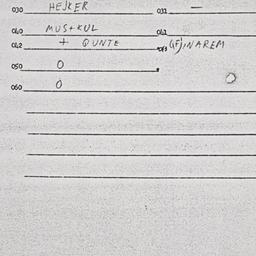 030 HEJKER 031 —
040 MUS+KUL 041
042 + QUNTE 043 (F) INAREM
050 0
060 0